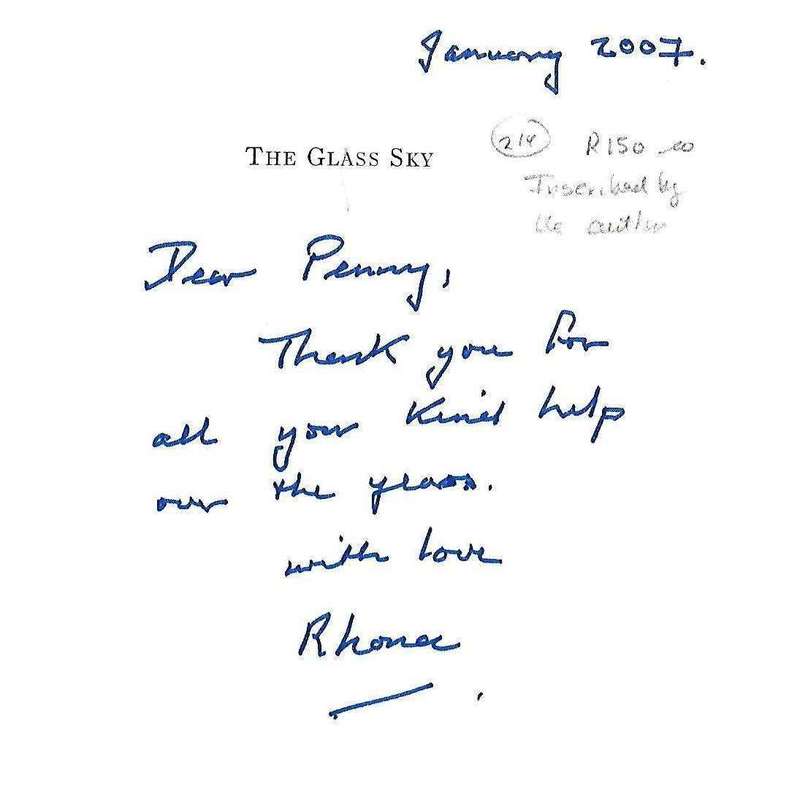 January 2007.
THE GLASS SKY
R150.00
Inscribed by
the author
Dear Penny,
Thank you for
all your kind help
over the years.
with love
Rhona